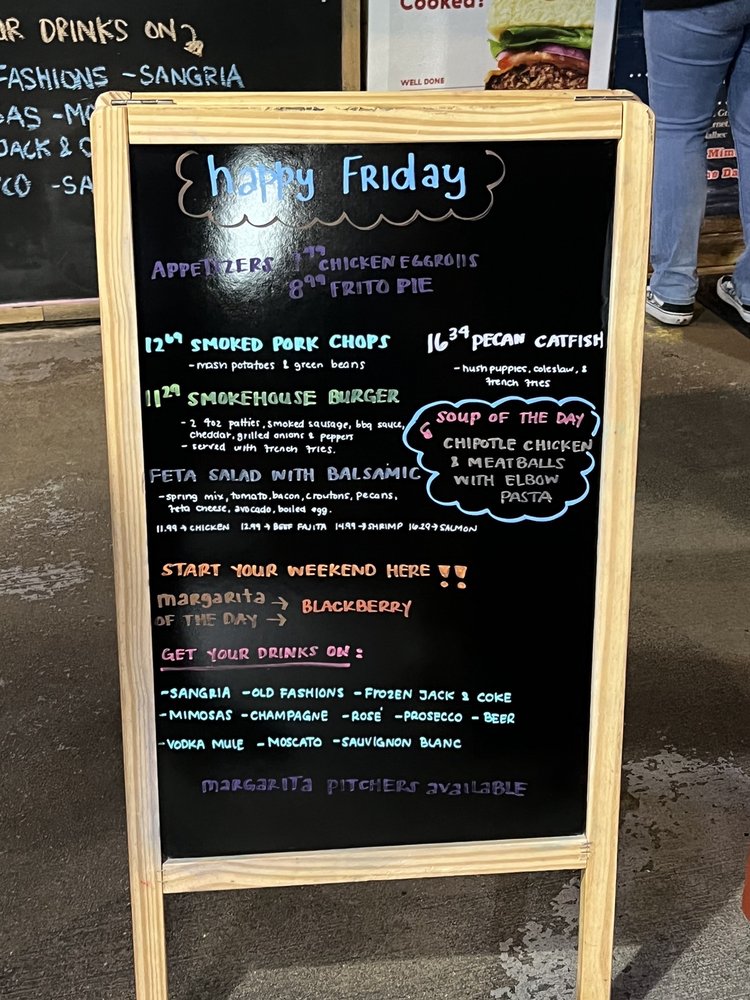 DRINKS ON
FASHIONS -SANGRIA
JACK &
Cooked?
WELL DONE
happy Friday
APPETIZERS 7.99 CHICKEN EGGROllS
8.99 FRITO PIE
12.69 SMOKED PORK CHOPS
-mash potatoes & green beans
16.34 PECAN CATFISH
-hush puppies, coleslaw, &
french fries
11.29 SMOKEHOUSE BURGER
- 2 4oz patties, smoked sausage, bbq sauce,
cheddar, grilled onions & peppers
- served with french fries.
SOUP OF THE DAY
CHIPOTLE CHICKEN
& MEATBALLS
WITH ELBOW
PASTA
FETA SALAD WITH BALSAMIC
-spring mix, tomato, bacon, croutons, pecans,
feta cheese, avocado, boiled egg.
11.99 → CHICKEN 12.99 → BEEF FAJITA 14.99 → SHRIMP 16.29 → SALMON
START YOUR WEEKEND HERE !!
margarita →
OF THE DAY → BLACKBERRY
GET YOUR DRINKS ON:
-SANGRIA -OLD FASHIONS -FROZEN JACK & COKE
-MIMOSAS -CHAMPAGNE -ROSÉ -PROSECCO -BEER
-VODKA MULE -MOSCATO -SAUVIGNON BLANC
margarita PITCHERS available